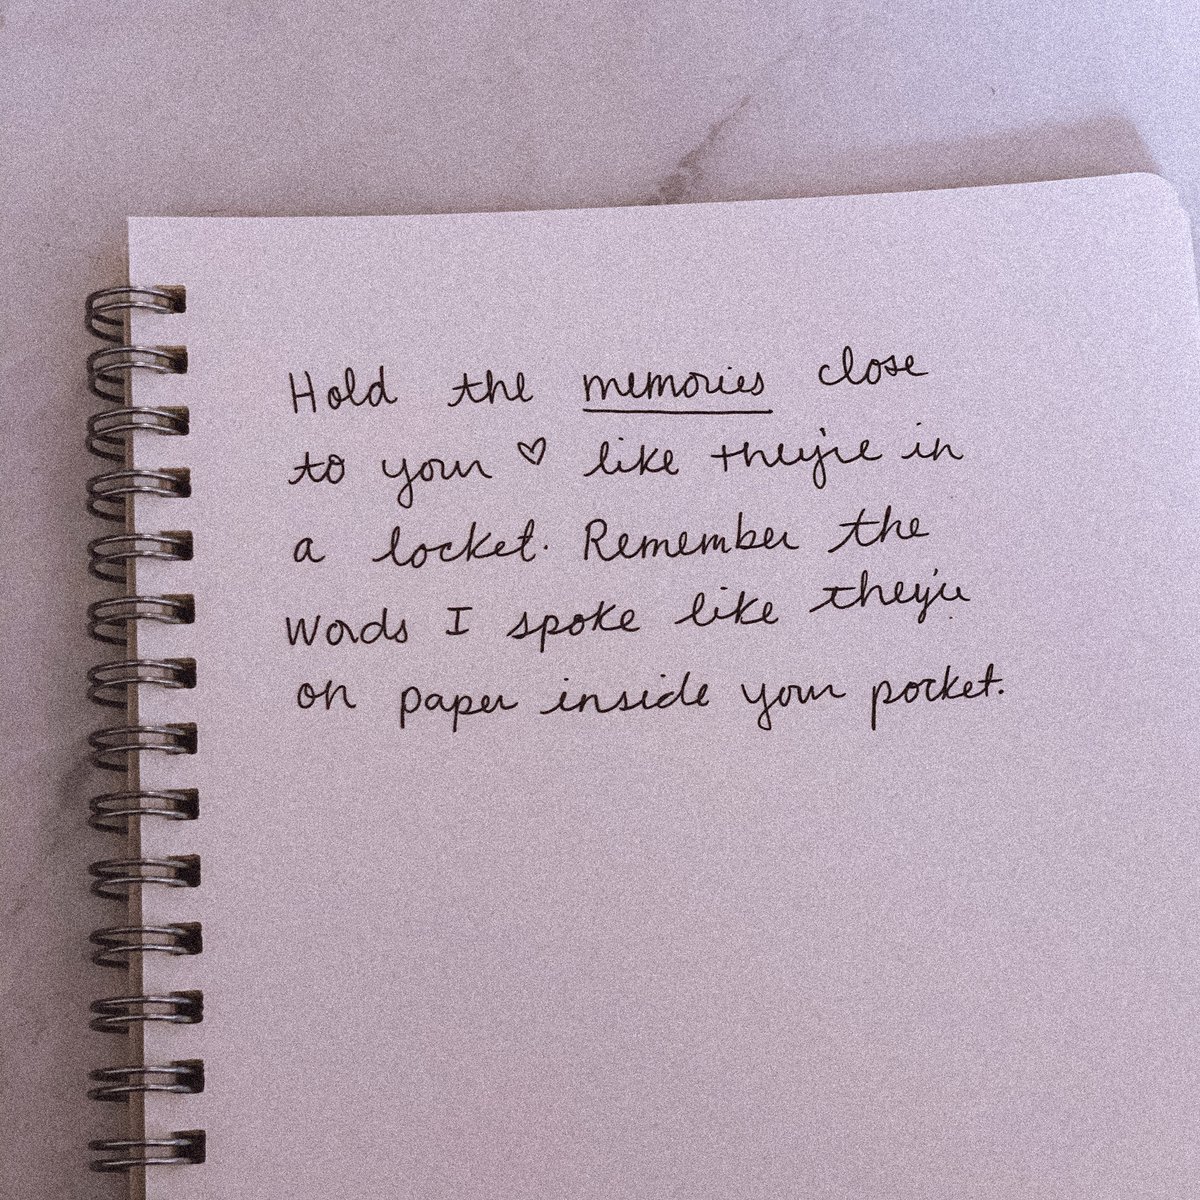 Hold the memories close
to your ♡ like they're in
a locket. Remember the
words I spoke like they're
on paper inside your pocket.